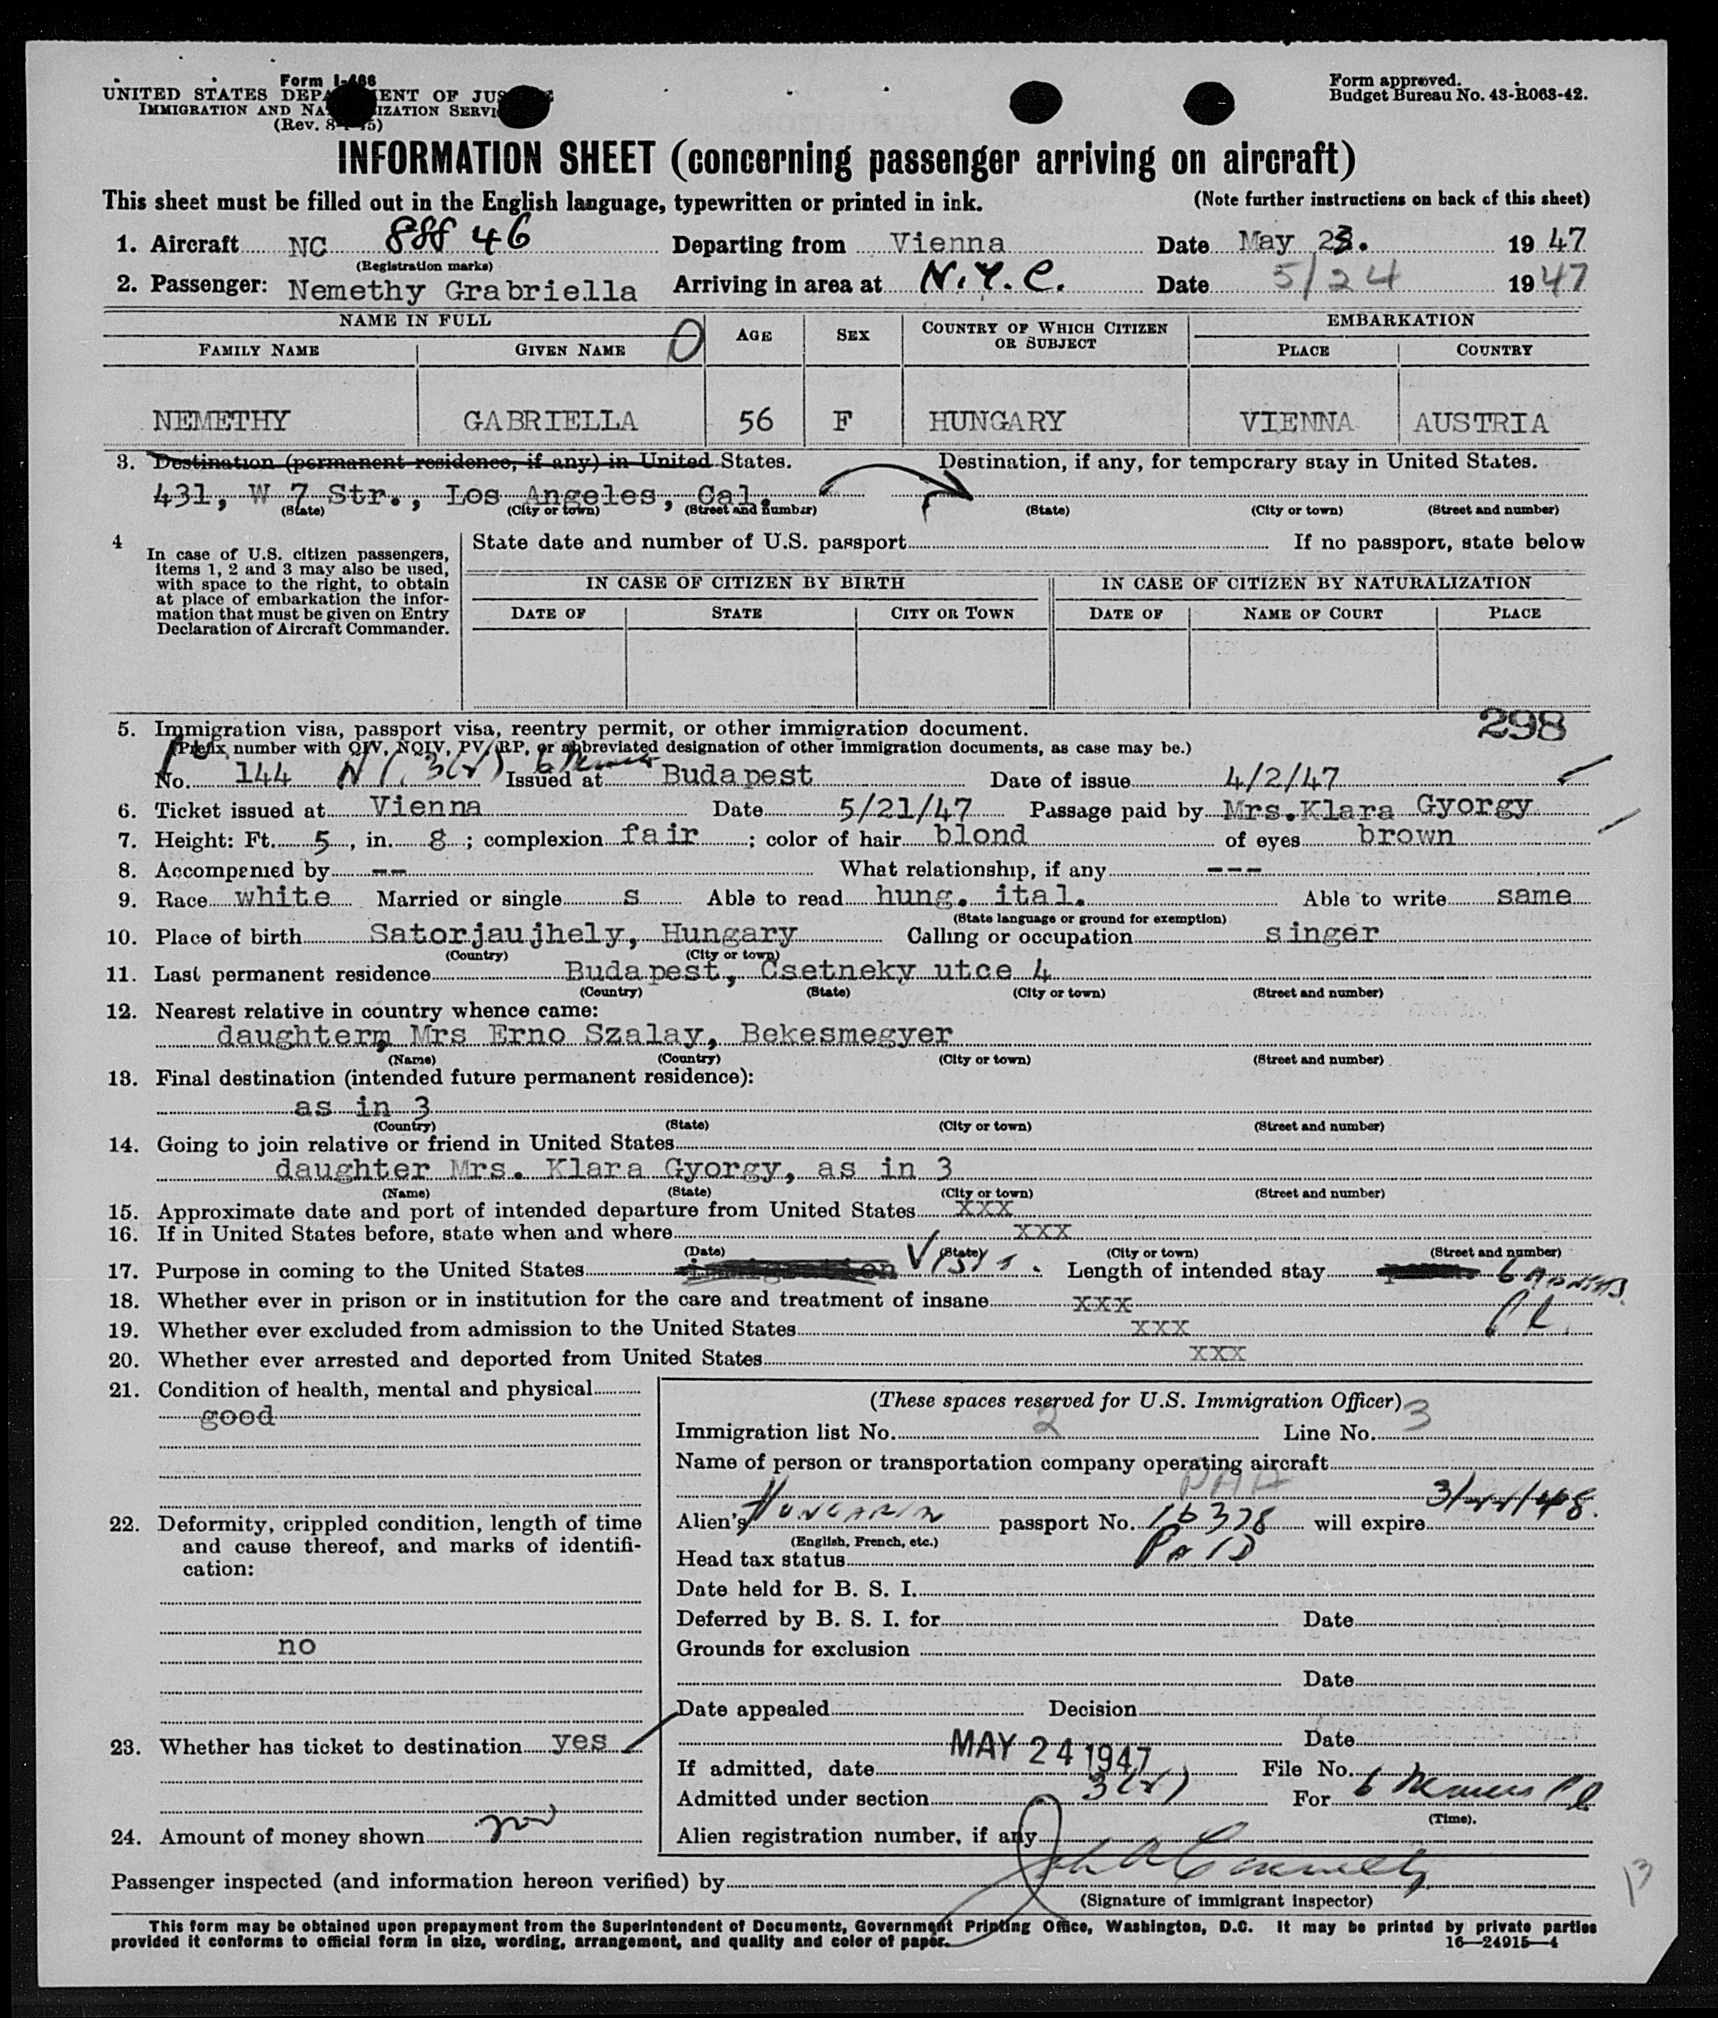 Form I-466
UNITED STATES DEPARTMENT OF JUSTICE
IMMIGRATION AND NATURALIZATION SERVICE
(Rev. 8-1-45)
Form approved.
Budget Bureau No. 43-R063-42.
INFORMATION SHEET (concerning passenger arriving on aircraft)
This sheet must be filled out in the English language, typewritten or printed in ink. (Note further instructions on back of this sheet)
1. Aircraft NC 888 46 Departing from Vienna Date May 23. 1947
(Registration marks)
2. Passenger: Nemethy Grabriella Arriving in area at N.Y.C. Date 5/24 1947
NAME IN FULL AGE SEX COUNTRY OF WHICH CITIZEN OR SUBJECT EMBARKATION
FAMILY NAME GIVEN NAME 0 PLACE COUNTRY
NEMETHY GABRIELLA 56 F HUNGARY VIENNA AUSTRIA
3. Destination (permanent residence, if any) in United States. Destination, if any, for temporary stay in United States.
431, W 7 Str., Los Angeles, Cal.
(State) (City or town) (Street and number) (State) (City or town) (Street and number)
4 In case of U.S. citizen passengers, items 1, 2 and 3 may also be used, with space to the right, to obtain at place of embarkation the information that must be given on Entry Declaration of Aircraft Commander.
State date and number of U.S. passport If no passport, state below
IN CASE OF CITIZEN BY BIRTH IN CASE OF CITIZEN BY NATURALIZATION
DATE OF STATE CITY OR TOWN DATE OF NAME OF COURT PLACE
5. Immigration visa, passport visa, reentry permit, or other immigration document. 298
(Prefix number with QIV, NQIV, PV, RP, or abbreviated designation of other immigration documents, as case may be.)
No. 144 3(2) Issued at Budapest Date of issue 4/2/47
6. Ticket issued at Vienna Date 5/21/47 Passage paid by Mrs.Klara Gyorgy
7. Height: Ft. 5, in. 8; complexion fair; color of hair blond of eyes brown
8. Accompanied by -- What relationship, if any ---
9. Race white Married or single s Able to read hung. ital. Able to write same
(State language or ground for exemption)
10. Place of birth Satorjaujhely, Hungary Calling or occupation singer
(Country) (City or town)
11. Last permanent residence Budapest, Csetneky utce 4
(Country) (State) (City or town) (Street and number)
12. Nearest relative in country whence came:
daughterm, Mrs Erno Szalay, Bekesmegyer
(Name) (Country) (City or town) (Street and number)
13. Final destination (intended future permanent residence):
as in 3
(Country) (State) (City or town) (Street and number)
14. Going to join relative or friend in United States
daughter Mrs. Klara Gyorgy, as in 3
(Name) (State) (City or town) (Street and number)
15. Approximate date and port of intended departure from United States xxx
16. If in United States before, state when and where xxx
(Date) (State) (City or town) (Street and number)
17. Purpose in coming to the United States immigration Visit. Length of intended stay 6 months
18. Whether ever in prison or in institution for the care and treatment of insane xxx
19. Whether ever excluded from admission to the United States xxx
20. Whether ever arrested and deported from United States xxx
21. Condition of health, mental and physical
good
22. Deformity, crippled condition, length of time and cause thereof, and marks of identification:
no
23. Whether has ticket to destination yes
24. Amount of money shown
(These spaces reserved for U.S. Immigration Officer)
Immigration list No. 2 Line No. 3
Name of person or transportation company operating aircraft
PAA
Alien's HUNGARIAN passport No. 16378 will expire
(English, French, etc.)
Head tax status PAID
Date held for B. S. I.
Deferred by B. S. I. for Date
Grounds for exclusion
Date
Date appealed Decision
Date
If admitted, date MAY 24 1947 File No.
Admitted under section 3(2) For 6
(Time).
Alien registration number, if any
Passenger inspected (and information hereon verified) by
(Signature of immigrant inspector)
This form may be obtained upon prepayment from the Superintendent of Documents, Government Printing Office, Washington, D.C. It may be printed by private parties
provided it conforms to official form in size, wording, arrangement, and quality and color of paper. 16—24915-4